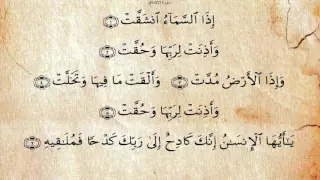 إِذَا ٱلسَّمَآءُ ٱنشَقَّتۡ ۝١
وَأَذِنَتۡ لِرَبِّهَا وَحُقَّتۡ ۝٢
وَإِذَا ٱلۡأَرۡضُ مُدَّتۡ ۝٣ وَأَلۡقَتۡ مَا فِيهَا وَتَخَلَّتۡ ۝٤
وَأَذِنَتۡ لِرَبِّهَا وَحُقَّتۡ ۝٥
يَٰٓأَيُّهَا ٱلۡإِنسَٰنُ إِنَّكَ كَادِحٌ إِلَىٰ رَبِّكَ كَدۡحٗا فَمُلَٰقِيهِ ۝٦